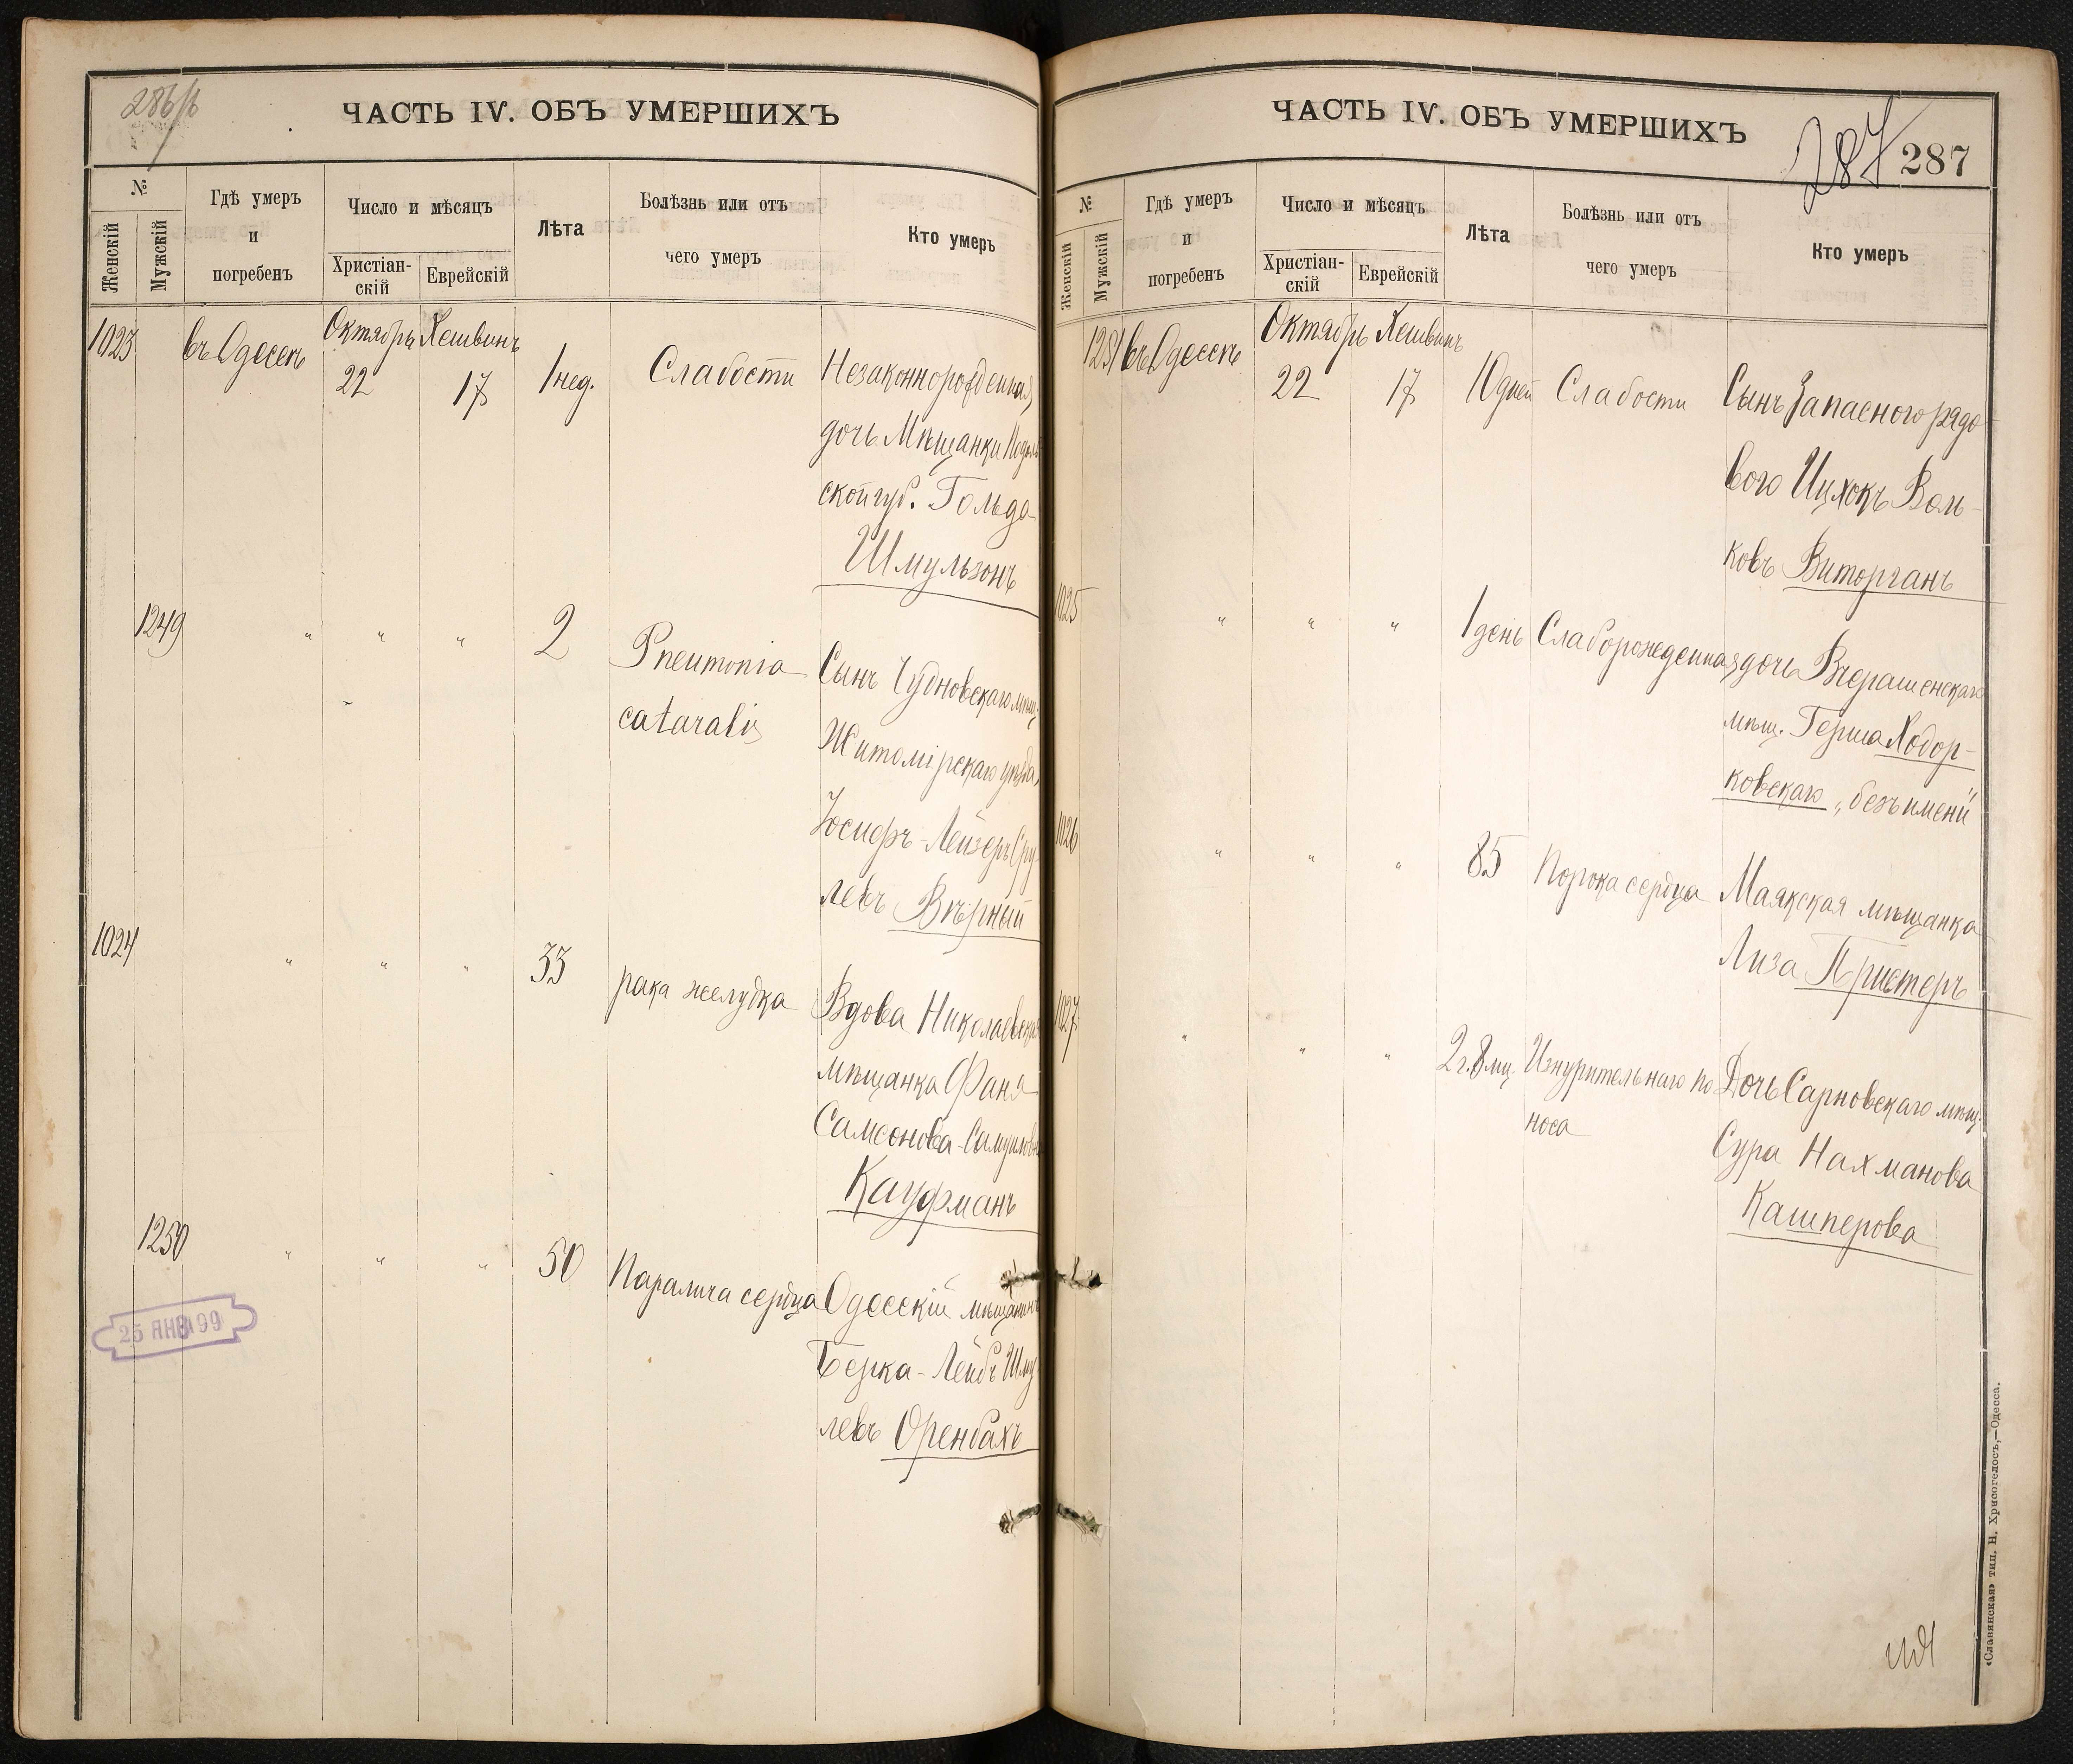 286/б
ЧАСТЬ IV. ОБЪ УМЕРШИХЪ
№
Женскій
Мужскій
Гдѣ умеръ
и
погребенъ
Число и мѣсяцъ
Христіан-
скій
Еврейскій
Лѣта
Болѣзнь или отъ
чего умеръ
Кто умеръ
1023 въ Одессѣ Октябрь Хешвинъ
22 17 1 нед. Слабости Незаконнорожденная
дочь Мѣщанки Подоль
ской губ. Гольда
Шмульзонъ
1249 " " " 2 Pneumonia Сынъ Чудновскаго мѣщ.
cataralis Житомірскаго уѣзда,
Іосифъ-Лейзеръ Сру-
левъ Вѣрный
1024 " " " 33 рака желудка Вдова Николаевская
мѣщанка Фаня
Самсонова-Самуиловна
Кауфманъ
1250 " " " 50 Паралича сердца Одесскій мѣщанинъ
Берка-Лейбъ Шму
левъ Оренбахъ
25 ЯНВ 99
ЧАСТЬ IV. ОБЪ УМЕРШИХЪ
287
287
№
Женскій
Мужскій
Гдѣ умеръ
и
погребенъ
Число и мѣсяцъ
Христіан-
скій
Еврейскій
Лѣта
Болѣзнь или отъ
чего умеръ
Кто умеръ
1251 въ Одессѣ Октябрь Хешвинъ
22 17 10 дней Слабости Сынъ Запаснаго рядо-
вого Ицхокъ Воль-
ковъ Виторганъ
1025 " " " 1 день Слаборожденная дочь Вчерашенскаго
мѣщ. Герша Ходор-
ковскаго „безъ имени"
1026 " " " 85 Порока сердца Маякская мѣщанка
Лиза Пристеръ
1027 " " " 2 г. 8 мц. Изнурительнаго по Дочь Сарновскаго мѣщ.
носа Сура Нахманова
Кашперова
«Славянская» тип. Н. Хрисогелосъ,—Одесса.